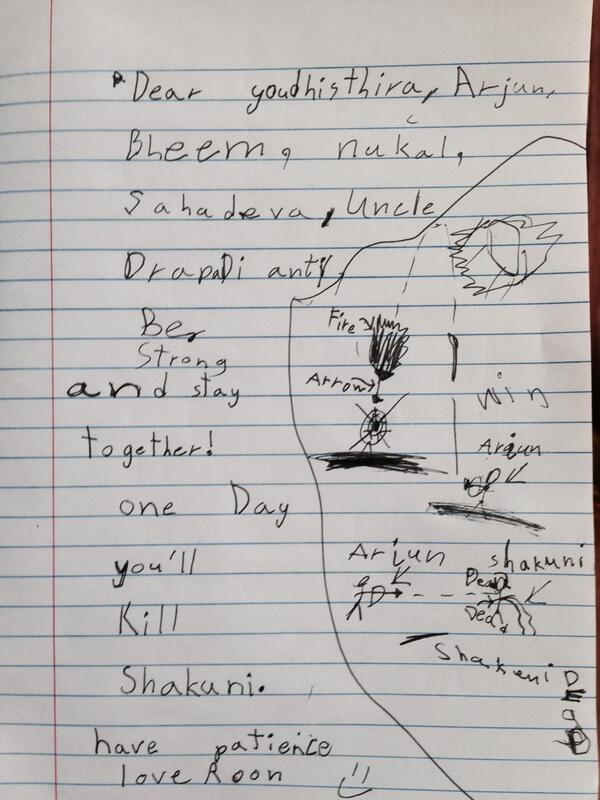 Dear youdhisthira, Arjun,
Bheem, nukal,
Sahadeva, Uncle
DrapaDi anti
Be
Strong
and stay
together!
one Day
you'll
Kill
Shakuni.
have patience
love Roon
Fire
Arrow
win
Arjun
Arjun
shakuni
Dead
Dead
Shakuni Dead